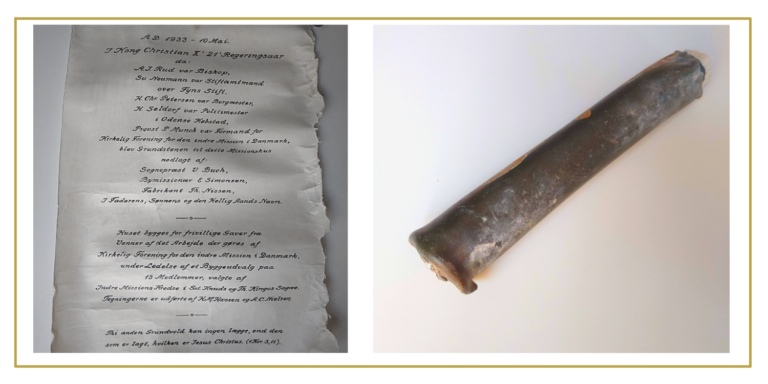 A.D. 1933 - 10 Mai.
I Kong Christian X.' 21' Regeringsaar
da:
A.J. Rud var Biskop,
Sv Neumann var Stiftamtmand
over Fyns Stift.
H. Chr Petersen var Borgmester,
H. Seldorf var Politimester
i Odense Købstad,
Provst P Munch var Formand for
Kirkelig Forening for den indre Mission i Danmark,
blev Grundstenen til dette Missionshus
nedlagt af:
Sognepræst V Buch,
Bymissionær E Simonsen,
Fabrikant Th. Nissen,
I Faderens, Sønnens og den Hellig Aands Navn.
Huset bygges for frivillige Gaver fra
Venner af det Arbejde der gøres af
Kirkelig Forening for den indre Mission i Danmark,
under Ledelse af et Byggeudvalg paa
15 Medlemmer, valgte af
Indre Missions Kredse i Sct. Knuds og Th. Kingos Sogne.
Tegningerne er udførte af H.M. Hansen og A.C. Nielsen
Thi anden Grundvold kan ingen lægge, end den
som er lagt, hvilken er Jesus Christus. (1 Kor 3,11).